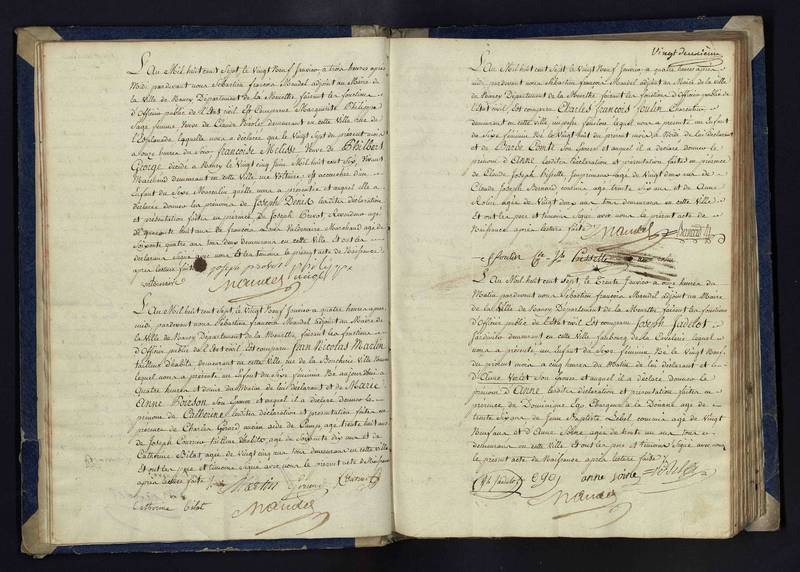 L'an Mil huit cent Sept, le Vingt Neuf Janvier, à trois heures après
Midi, pardevant nous Sébastien François Mandel adjoint au Maire de
la Ville de Nancy Département de la Meurthe, faisant les fonctions
d'Officier public de l'Etat civil, Est comparue Marguerite Philippe
Sage femme, Veuve de Claude demeurant en cette Ville, rue de
l'Esplanade, laquelle nous a déclaré que le Vingt Sept du présent mois
à onze heures du soir, Françoise Melisse Veuve de Philbert
George décédé à Nancy le vingt cinq Juin Mil huit cent Six, Vivant
Marchand demeurant en cette Ville rue Voltaire, est accouchée d'un
Enfant du Sexe Masculin qu'elle nous a présenté et auquel elle a
déclaré donner les prénoms de Joseph Denis lesdites déclaration
et présentation faites en présence de Joseph Prevot, agé
de quarante huit ans et François Louis Marchand agé de
Soixante quatre ans tous deux demeurans en cette Ville Et ont la
déclarante Signé avec nous et les témoins le présent acte de Naissance
après lecture faite
joseph prevot philippe
valdenaire
Mandel
L'an Mil huit cent Sept, le Vingt Neuf Janvier à quatre heures après
midi, pardevant nous Sébastien François Mandel adjoint au Maire de
la Ville de Nancy Département de la Meurthe, faisant les fonctions
d'Officier public de l'Etat civil Est comparu Jean Nicolas Martin
tailleur d'habits, demeurant en cette Ville, rue de la Boucherie Ville Vieille
lequel nous a présenté un Enfant du Sexe féminin Né aujourd'hui à
quatre heures et demie du Matin de lui déclarant et de Marie
Anne Poirson Son Epouse et auquel il a déclaré donner le
prénom de Catherine lesdites déclaration et présentation faites en
présence de Charles Gérard ancien aide de Camp, agé trente huit ans
de Joseph tailleur d'habits agé de Soixante dix ans et de
Catherine Bilot agée de Vingt cinq ans tous demeurans en cette ville
Et ont les père et témoins Signé avec nous le présent acte de Naissance
après lecture faite
Martin Gérard
Catherine Bilot
Mandel
Vingt deuxième
L'an Mil huit cent Sept, le Vingt Neuf Janvier à quatre heures après
midi, pardevant nous Sébastien François Mandel adjoint au Maire de la ville
de Nancy Département de la Meurthe faisant les fonctions d'Officier public de
l'Etat civil, Est comparu Charles François Foulin Charpentier
demeurant en cette Ville, lequel nous a présenté un Enfant
du Sexe féminin Né le Vingt huit du présent mois à midi de lui déclarant
et de Barbe Comte Son Epouse et auquel il a déclaré donner le
prénom d'Anne lesdites déclaration et présentation faites en présence
de Claude Joseph Hissette Imprimeur agé de Vingt deux ans de
Claude Joseph Bernard commis agé trente Six ans et de Anne
Robin agée de Vingt deux ans tous demeurans en cette Ville
Et ont les père et témoins Signé avec nous le présent acte de
Naissance après lecture faite
Mandel Bernard
c f foulin Cde Jph hissette anne robin
L'an Mil huit cent Sept, le Trente Janvier à onze heures du
Matin pardevant nous Sébastien François Mandel adjoint au Maire
de la Ville de Nancy Département de la Meurthe faisant les fonctions
d'Officier public de l'Etat civil Est comparu Joseph Jadelot
Jardinier demeurant en cette Ville, faubourg de la lequel
nous a présenté un Enfant du Sexe féminin Né le Vingt Neuf
du présent mois à cinq heures du Matin de lui déclarant et
d'Anne Voirlet Son Epouse et auquel il a déclaré donner le
prénom d'Anne lesdites déclaration et présentation faites en
présence de Dominique à la Douane agé de
trente Six ans de Jean Baptiste Lebel commis agé de Vingt
Neuf ans et d'Anne agée de trente un ans tous
demeurans en cette Ville Et ont les père et témoins Signé avec nous
le présent acte de Naissance après lecture faite
Jph Jadelot anne
Mandel